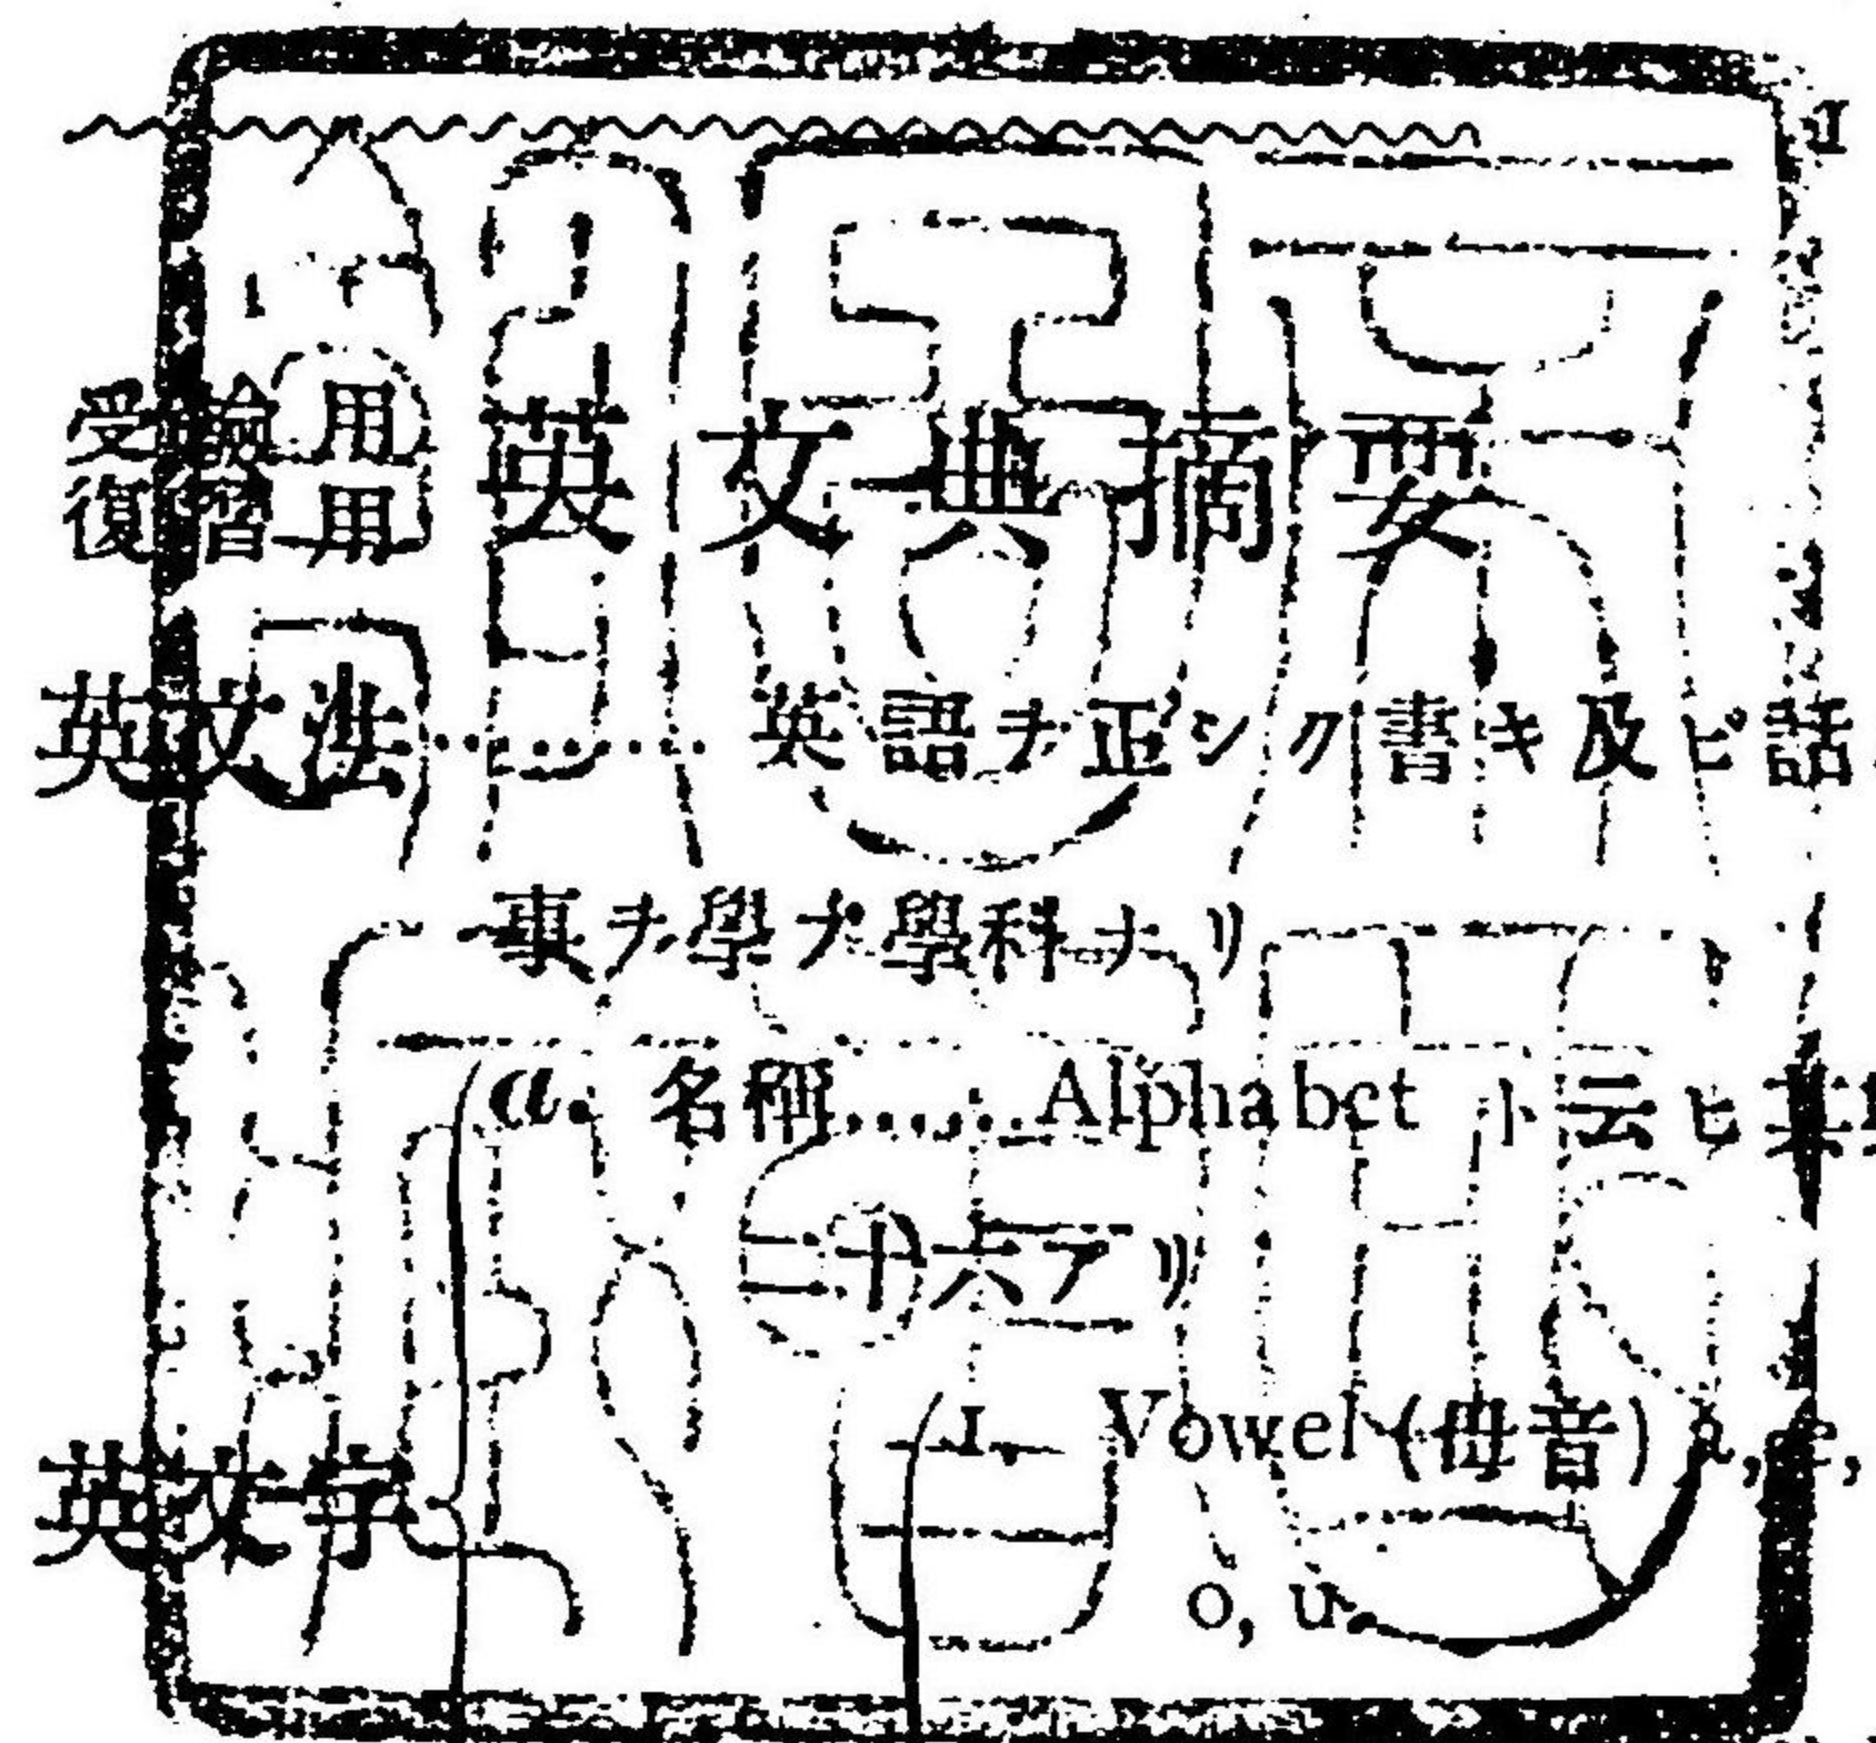 1
受驗用
復習用 英文典摘要
英文法......... 英語ヲ正シク書キ及ビ話
事ヲ學ブ學科ナリ
a. 名稱......Alphabet ト云ヒ其
二十六アリ
1. Vowel (母音) a, e,
英文字
o, u.